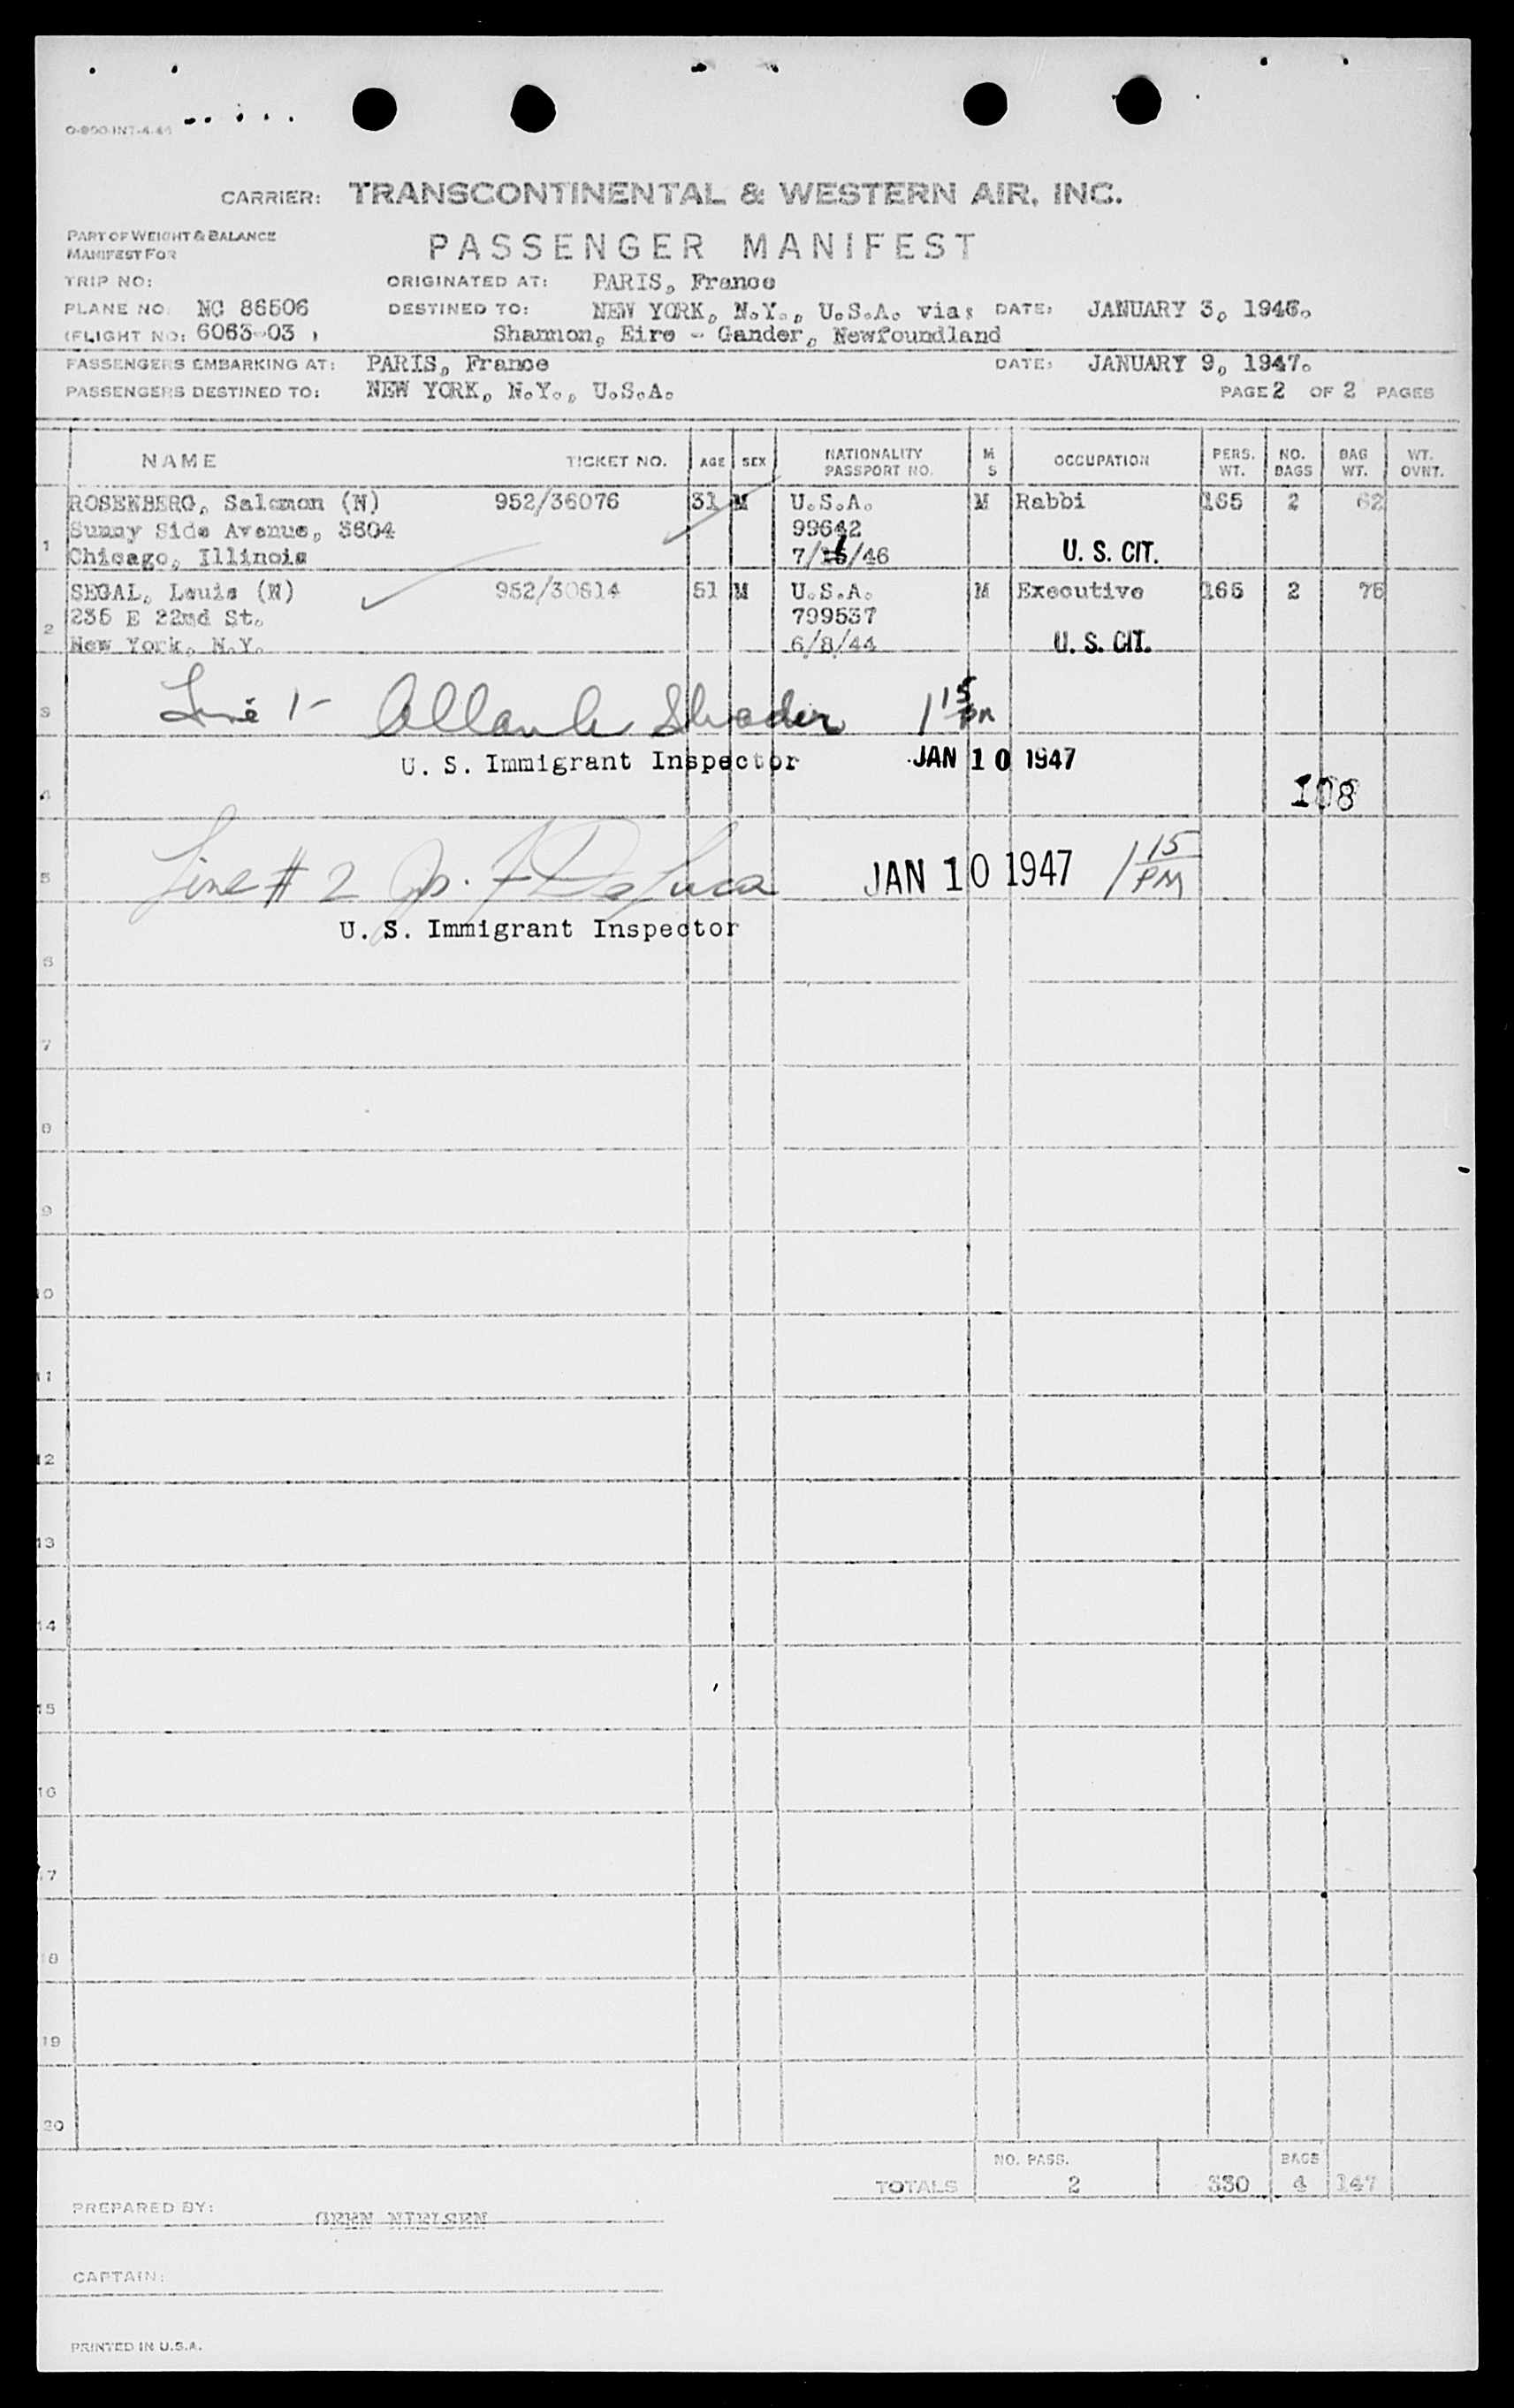 O-800-INT-4-46
CARRIER: TRANSCONTINENTAL & WESTERN AIR, INC.
PART OF WEIGHT & BALANCE
MANIFEST FOR
PASSENGER MANIFEST
TRIP NO: ORIGINATED AT: PARIS, France
PLANE NO. NC 86506 DESTINED TO: NEW YORK, N.Y., U.S.A. via: DATE: JANUARY 3, 1946.
(FLIGHT NO: 6063-03 ) Shannon, Eire - Gander, Newfoundland
PASSENGERS EMBARKING AT: PARIS, France DATE: JANUARY 9, 1947.
PASSENGERS DESTINED TO: NEW YORK, N.Y., U.S.A. PAGE 2 OF 2 PAGES
NAME TICKET NO. AGE SEX NATIONALITY PASSPORT NO. M S OCCUPATION PERS. WT. NO. BAGS BAG WT. WT. OVNT.
ROSENBERG, Salomon (N) 952/36076 31 M U.S.A. M Rabbi 165 2 62
Sunny Side Avenue, 3604 99642
1 Chicago, Illinois 7/ /46 U. S. CIT.
SEGAL, Louis (N) 952/30814 51 M U.S.A. M Executive 165 2 75
2 235 E 22nd St. 799537
New York, N.Y. 6/8/44 U. S. CIT.
3 Line 1- 1 15 PM
U. S. Immigrant Inspector JAN 10 1947
4 108
5 Line # 2 DeLuca JAN 10 1947 1 15 PM
U. S. Immigrant Inspector
6
7
8
9
10
11
12
13
14
15
16
17
18
19
20
NO. PASS. BAGS
TOTALS 2 330 4 147
PREPARED BY: NIELSEN
CAPTAIN:
PRINTED IN U.S.A.